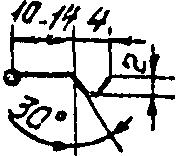 10-14 4
2
30°